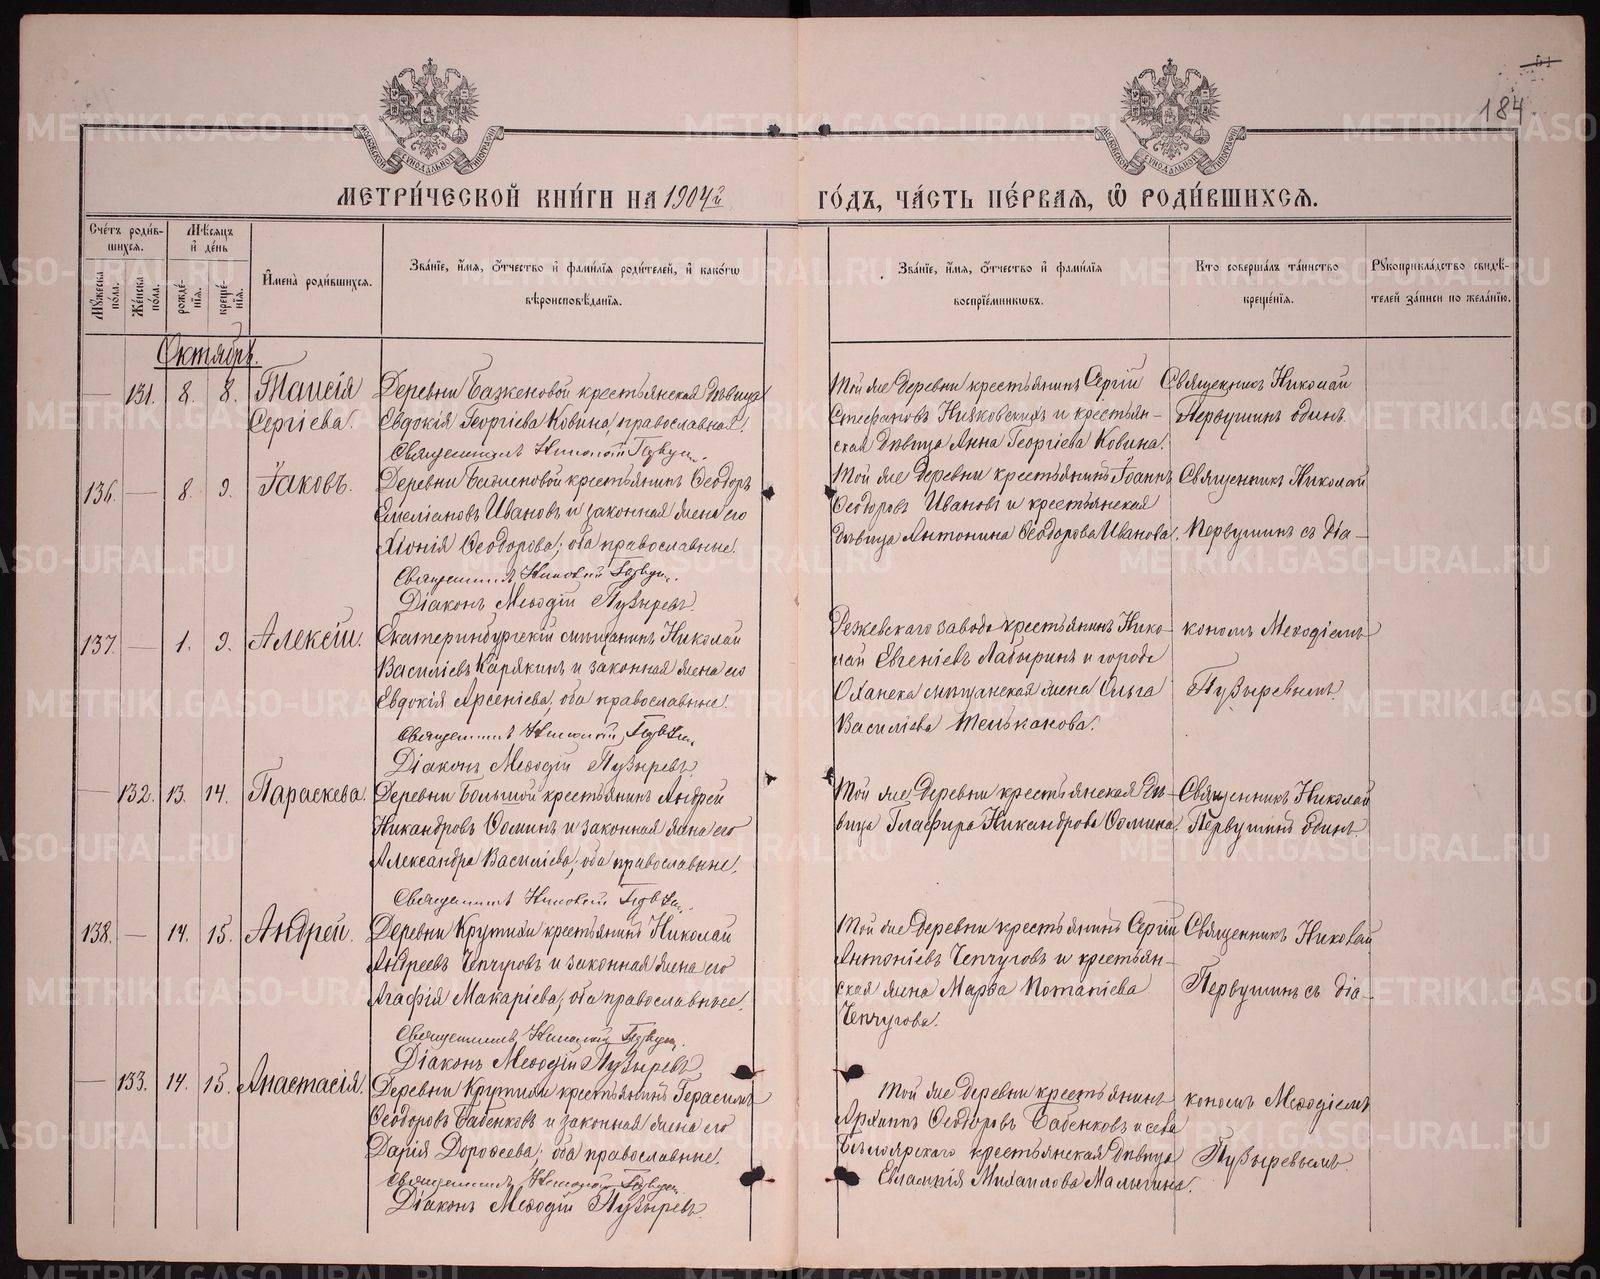 184
МЕТРИ́ЧЕСКОЙ КНИ́ГИ НА 1904й ГО́ДЪ, ЧА́СТЬ ПЕ́РВАѦ, Ѡ РОДИ́ВШИХСѦ.
Счетъ роди́вшихсѧ.
Мѣ́сѧцъ и де́нь
Имена̀ роди́вшихсѧ.
Зва́нїе, имѧ, отчество и фами́лїѧ роди́телей, и како́гѡ вѣроисповѣ́данїѧ.
Зва́нїе, имѧ, отчество и фами́лїѧ воспрїе́мникѡвъ.
Кто соверша́лъ та́инство креще́нїѧ.
Рꙋкоприкла́дство свидѣ́телей за́писи по жела́нїю.
Мꙋ́жеска по́ла.
Же́нска по́ла.
рожде́нїѧ.
креще́нїѧ.
Октябрь.
— 131. 8. 8. Таисія Сергіева.
Деревни Баженовой крестьянская дѣвица
Евдокія Георгіева Ковина, православная.
Священникъ Николай
Той же деревни крестьянинъ Сергій
Стефановъ и крестьян-
ская дѣвица Анна Георгіева Ковина.
Священникъ Николай
Первушинъ одинъ.
136. — 8. 9. Іаковъ.
Деревни Баженовой крестьянинъ Ѳеодоръ
Емеліановъ Ивановъ и законная жена его
Хіонія Ѳеодорова, оба православные.
Священникъ Николай
Діаконъ Меѳодій Пузыревъ.
Той же деревни крестьянинъ Іоаннъ
Ѳеодоровъ Ивановъ и крестьянская
дѣвица Антонина Ѳеодорова Иванова.
Священникъ Николай
Первушинъ съ діа-
137. — 1. 9. Алексій.
Екатеринбургскій мѣщанинъ Николай
Василіевъ Карякинъ и законная жена его
Евдокія Арсеніева, оба православные.
Священникъ Николай
Діаконъ Меѳодій Пузыревъ.
Режевскаго завода крестьянинъ Нико-
лай Евгеніевъ Лабыринъ и города
Оханска мѣщанская жена Ольга
Василіева Мельканова.
кономъ Меѳодіемъ
Пузыревымъ.
— 132. 13. 14. Параскева.
Деревни Большой крестьянинъ Андрей
Никандровъ Ѳоминъ и законная жена его
Александра Василіева, оба православные.
Священникъ Николай
Той же деревни крестьянская дѣ-
вица Глафира Никандрова Ѳомина.
Священникъ Николай
Первушинъ одинъ.
138. — 14. 15. Андрей.
Деревни Крутихи крестьянинъ Николай
Андреевъ Чепчуговъ и законная жена его
Агафія Макаріева, оба православные.
Священникъ Николай
Діаконъ Меѳодій Пузыревъ.
Той же деревни крестьянинъ Сергій
Антоніевъ Чепчуговъ и крестьян-
ская жена Марѳа Потапіева
Чепчугова.
Священникъ Николай
Первушинъ съ діа-
— 133. 14. 15. Анастасія.
Деревни Крутихи крестьянинъ Герасимъ
Ѳеодоровъ Бабенковъ и законная жена его
Дарія Дороѳеева, оба православные.
Священникъ Николай
Діаконъ Меѳодій Пузыревъ.
Той же деревни крестьянинъ
Архиппъ Ѳеодоровъ Бабенковъ и села
Бѣлоярскаго крестьянская дѣвица
Евлампія Михаилова Малыгина.
кономъ Меѳодіемъ
Пузыревымъ.
METRIKI.GASO-URAL.RU